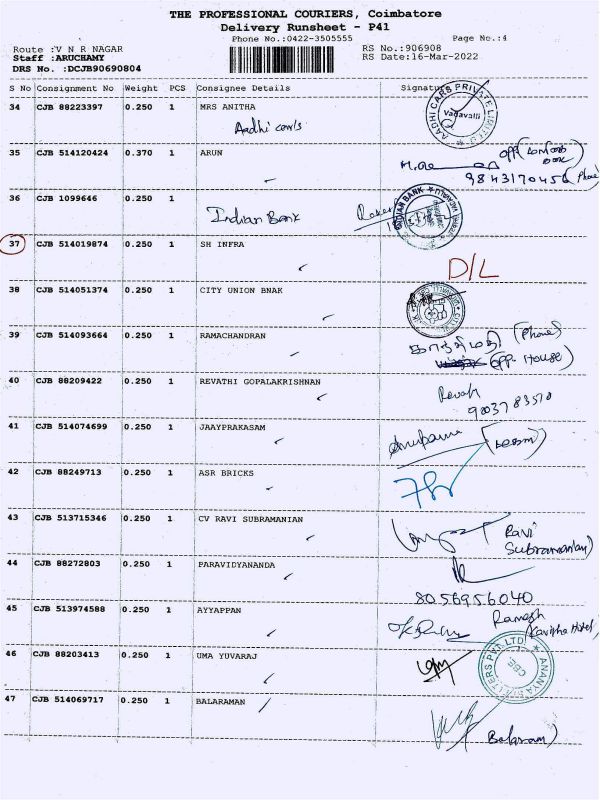 THE PROFESSIONAL COURIERS, Coimbatore
Delivery Runsheet - P41
Phone No.:0422-3505555 Page No.:4
Route :V N R NAGAR RS No.:906908
Staff :ARUCHAMY RS Date:16-Mar-2022
DRS No. :DCJB90690804
S No Consignment No Weight PCS Consignee Details Signature
34 CJB 88223397 0.250 1 MRS ANITHA
Aadhi cars
AADHI CARS PRIVATE LIMITED
Vadavalli
35 CJB 514120424 0.370 1 ARUN
9843170456 (Phone)
36 CJB 1099646 0.250 1
Indian Bank
INDIAN BANK
37 CJB 514019874 0.250 1 SH INFRA
D/L
38 CJB 514051374 0.250 1 CITY UNION BNAK
39 CJB 514093664 0.250 1 RAMACHANDRAN
காந்திமதி (Phone)
(opp. House)
40 CJB 88209422 0.250 1 REVATHI GOPALAKRISHNAN
Revath
9003783510
41 CJB 514074699 0.250 1 JAAYPRAKASAM
Anupama
42 CJB 88249713 0.250 1 ASR BRICKS
43 CJB 513715346 0.250 1 CV RAVI SUBRAMANIAN
Ravi
Subramanian)
44 CJB 88272803 0.250 1 PARAVIDYANANDA
8056956040
45 CJB 513974588 0.250 1 AYYAPPAN
Ramesh
Kavitha Hotel)
46 CJB 88203413 0.250 1 UMA YUVARAJ
CBE
47 CJB 514069717 0.250 1 BALARAMAN
Balaram)